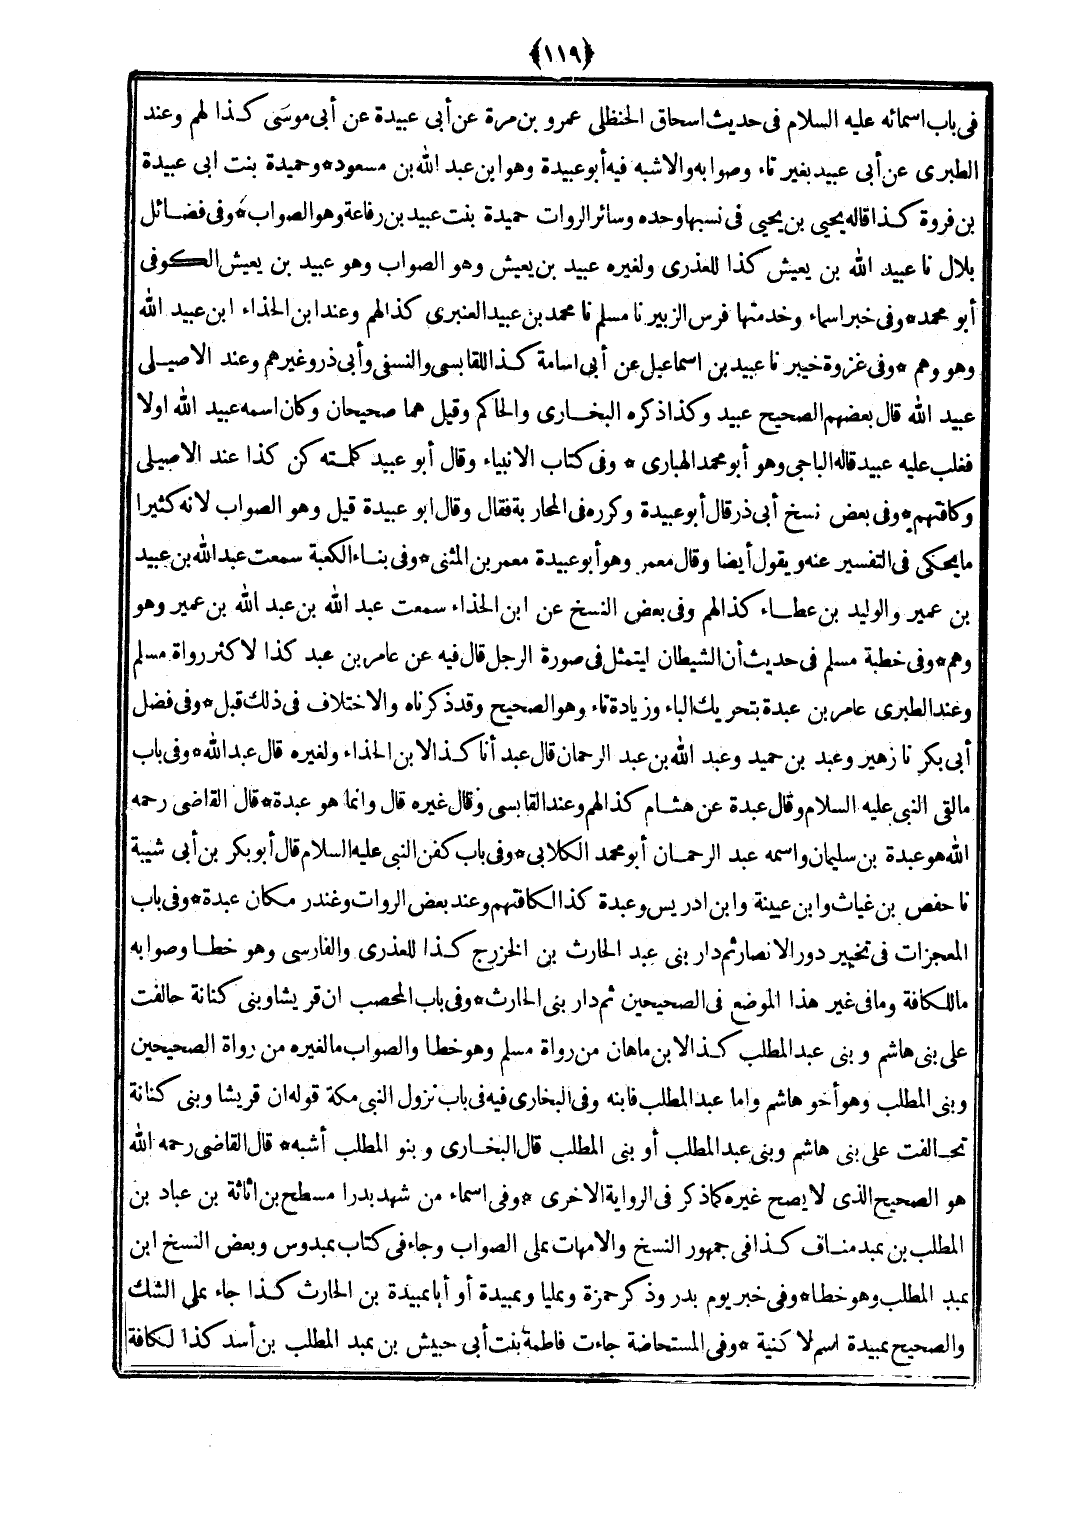 ﴿١١٩﴾
فى باب اسمائه عليه السلام فى حديث اسحاق الحنظلى عمرو بن مرة عن أبى عبيدة عن أبى موسى كذا لهم وعند
الطبرى عن أبى عبيد بغير تاء وصوابه والاشبه فيه أبو عبيدة وهو ابن عبد الله بن مسعود * وحميدة بنت ابى عبيدة
بن فروة كذا قاله يحيى بن يحيى فى نسبها وحده وسائر الروات حميدة بنت عبيد بن رفاعة وهو الصواب * وفى فضائل
بلال نا عبيد الله بن يعيش كذا للعذرى ولغيره عبيد بن يعيش وهو الصواب وهو عبيد بن يعيش الكوفى
أبو محمد * وفى خبر اسماء وخدمتها فرس الزبير نا مسلم نا محمد بن عبيد العنبرى كذا لهم وعند ابن الحذاء ابن عبيد الله
وهو وهم * وفى غزوة خيبر نا عبيد بن اسماعيل عن أبى اسامة كذا للقابسى والنسفى وأبى ذر وغيرهم وعند الاصيلى
عبيد الله قال بعضهم الصحيح عبيد وكذا ذكره البخارى والحاكم وقيل هما صحيحان وكان اسمه عبيد الله اولا
فغلب عليه عبيد قاله الباجى وهو أبو محمد الهبارى * وفى كتاب الانبياء وقال أبو عبيد كلمته كن كذا عند الاصيلى
وكافتهم * وفى بعض نسخ أبى ذر قال أبو عبيدة وكرره فى المحاربة فقال وقال ابو عبيدة قيل وهو الصواب لانه كثيرا
ما يحكى فى التفسير عنه ويقول أيضا وقال معمر وهو أبو عبيدة معمر بن المثنى * وفى بناء الكعبة سمعت عبد الله بن عبيد
بن عمير والوليد بن عطاء كذا لهم وفى بعض النسخ عن ابن الحذاء سمعت عبد الله بن عبد الله بن عمير وهو
وهم * وفى خطبة مسلم فى حديث أن الشيطان ليتمثل فى صورة الرجل قال فيه عن عامر بن عبد كذا لاكثر رواة مسلم
وعند الطبرى عامر بن عبدة بتحريك الباء وزيادة تاء وهو الصحيح وقد ذكرناه والاختلاف فى ذلك قبل * وفى فضل
أبى بكر نا زهير وعبد بن حميد وعبد الله بن عبد الرحمان قال عبد أنا كذا لابن الحذاء ولغيره قال عبد الله * وفى باب
مالقى النبى عليه السلام وقال عبدة عن هشام كذا لهم وعند القابسى وقال غيره قال وانما هو عبدة * قال القاضى رحمه
الله هو عبدة بن سليمان واسمه عبد الرحمان أبو محمد الكلابى * وفى باب كفن النبى عليه السلام قال أبو بكر بن أبى شيبة
نا حفص بن غياث وابن عيينة وابن ادريس وعبدة كذا لكافتهم وعند بعض الروات وغندر مكان عبدة * وفى باب
المعجزات فى تخيير دور الانصار ثم دار بنى عبد الحارث بن الخزرج كذا للعذرى والفارسى وهو خطا وصوابه
ما للكافة وما فى غير هذا الموضع فى الصحيحين ثم دار بنى الحارث * وفى باب المحصب ان قريشا وبنى كنانة حالفت
على بنى هاشم وبنى عبد المطلب كذا لابن ماهان من رواة مسلم وهو خطا والصواب ما لغيره من رواة الصحيحين
وبنى المطلب وهو أخو هاشم واما عبد المطلب فابنه وفى البخارى فيه فى باب نزول النبى مكة قوله ان قريشا وبنى كنانة
تحالفت على بنى هاشم وبنى عبد المطلب أو بنى المطلب قال البخارى وبنو المطلب أشبه * قال القاضى رحمه الله
هو الصحيح الذى لا يصح غيره كما ذكر فى الرواية الاخرى * وفى اسماء من شهد بدرا مسطح بن اثاثة بن عباد بن
المطلب بن عبد مناف كذا فى جمهور النسخ والامهات على الصواب وجاء فى كتاب عبدوس وبعض النسخ ابن
عبد المطلب وهو خطا * وفى خبر يوم بدر وذكر حمزة وعليا وعبيدة أو أبا عبيدة بن الحارث كذا جاء على الشك
والصحيح عبيدة اسم لا كنية * وفى المستحاضة جاءت فاطمة بنت أبى حبيش بن عبد المطلب بن أسد كذا لكافة